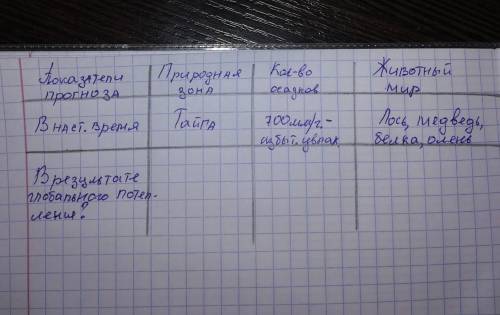 Показатели прогноза
Природная зона
Кол-во осадков
Животный мир
В наст. время
Тайга
700мм/г. - избыт. увлаж.
Лось, медведь, белка, олень
В результате глобального потеп- ления?